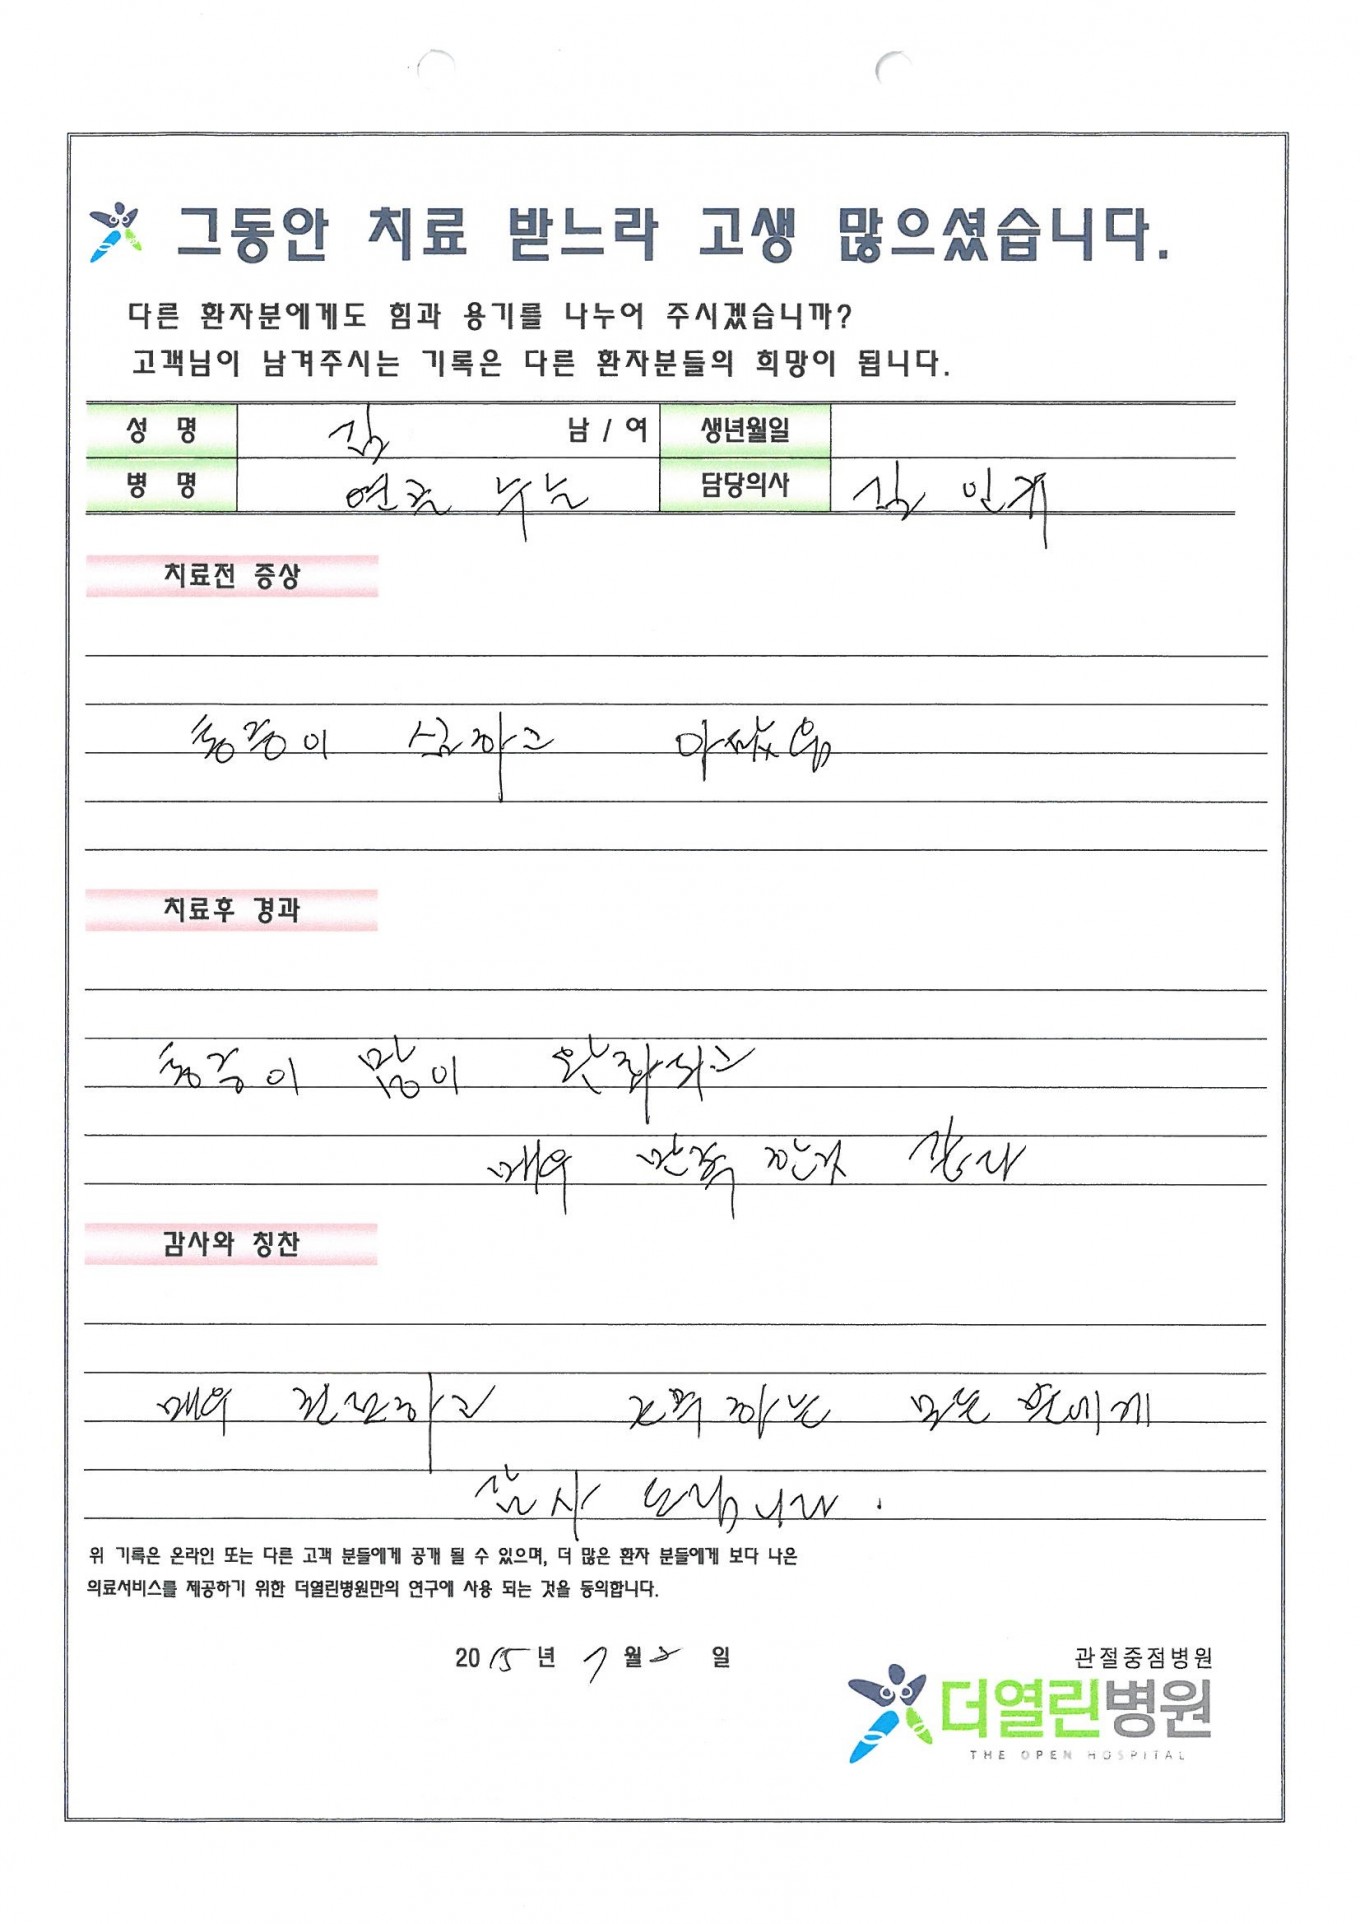 그동안 치료 받느라 고생 많으셨습니다.
다른 환자분에게도 힘과 용기를 나누어 주시겠습니까?
고객님이 남겨주시는 기록은 다른 환자분들의 희망이 됩니다.
성 명 김 남 / 여 생년월일
병 명 연골 담당의사 김
치료전 증상
통증이 심하고
치료후 경과
통증이 많이 완화되고
매우 만족 같다
감사와 칭찬
매우 친절하고 모든 분에게
감사 드립니다.
위 기록은 온라인 또는 다른 고객 분들에게 공개 될 수 있으며, 더 많은 환자 분들에게 보다 나은
의료서비스를 제공하기 위한 더열린병원만의 연구에 사용 되는 것을 동의합니다.
2015년 7월 2일
관절중점병원
더열린병원
THE OPEN HOSPITAL